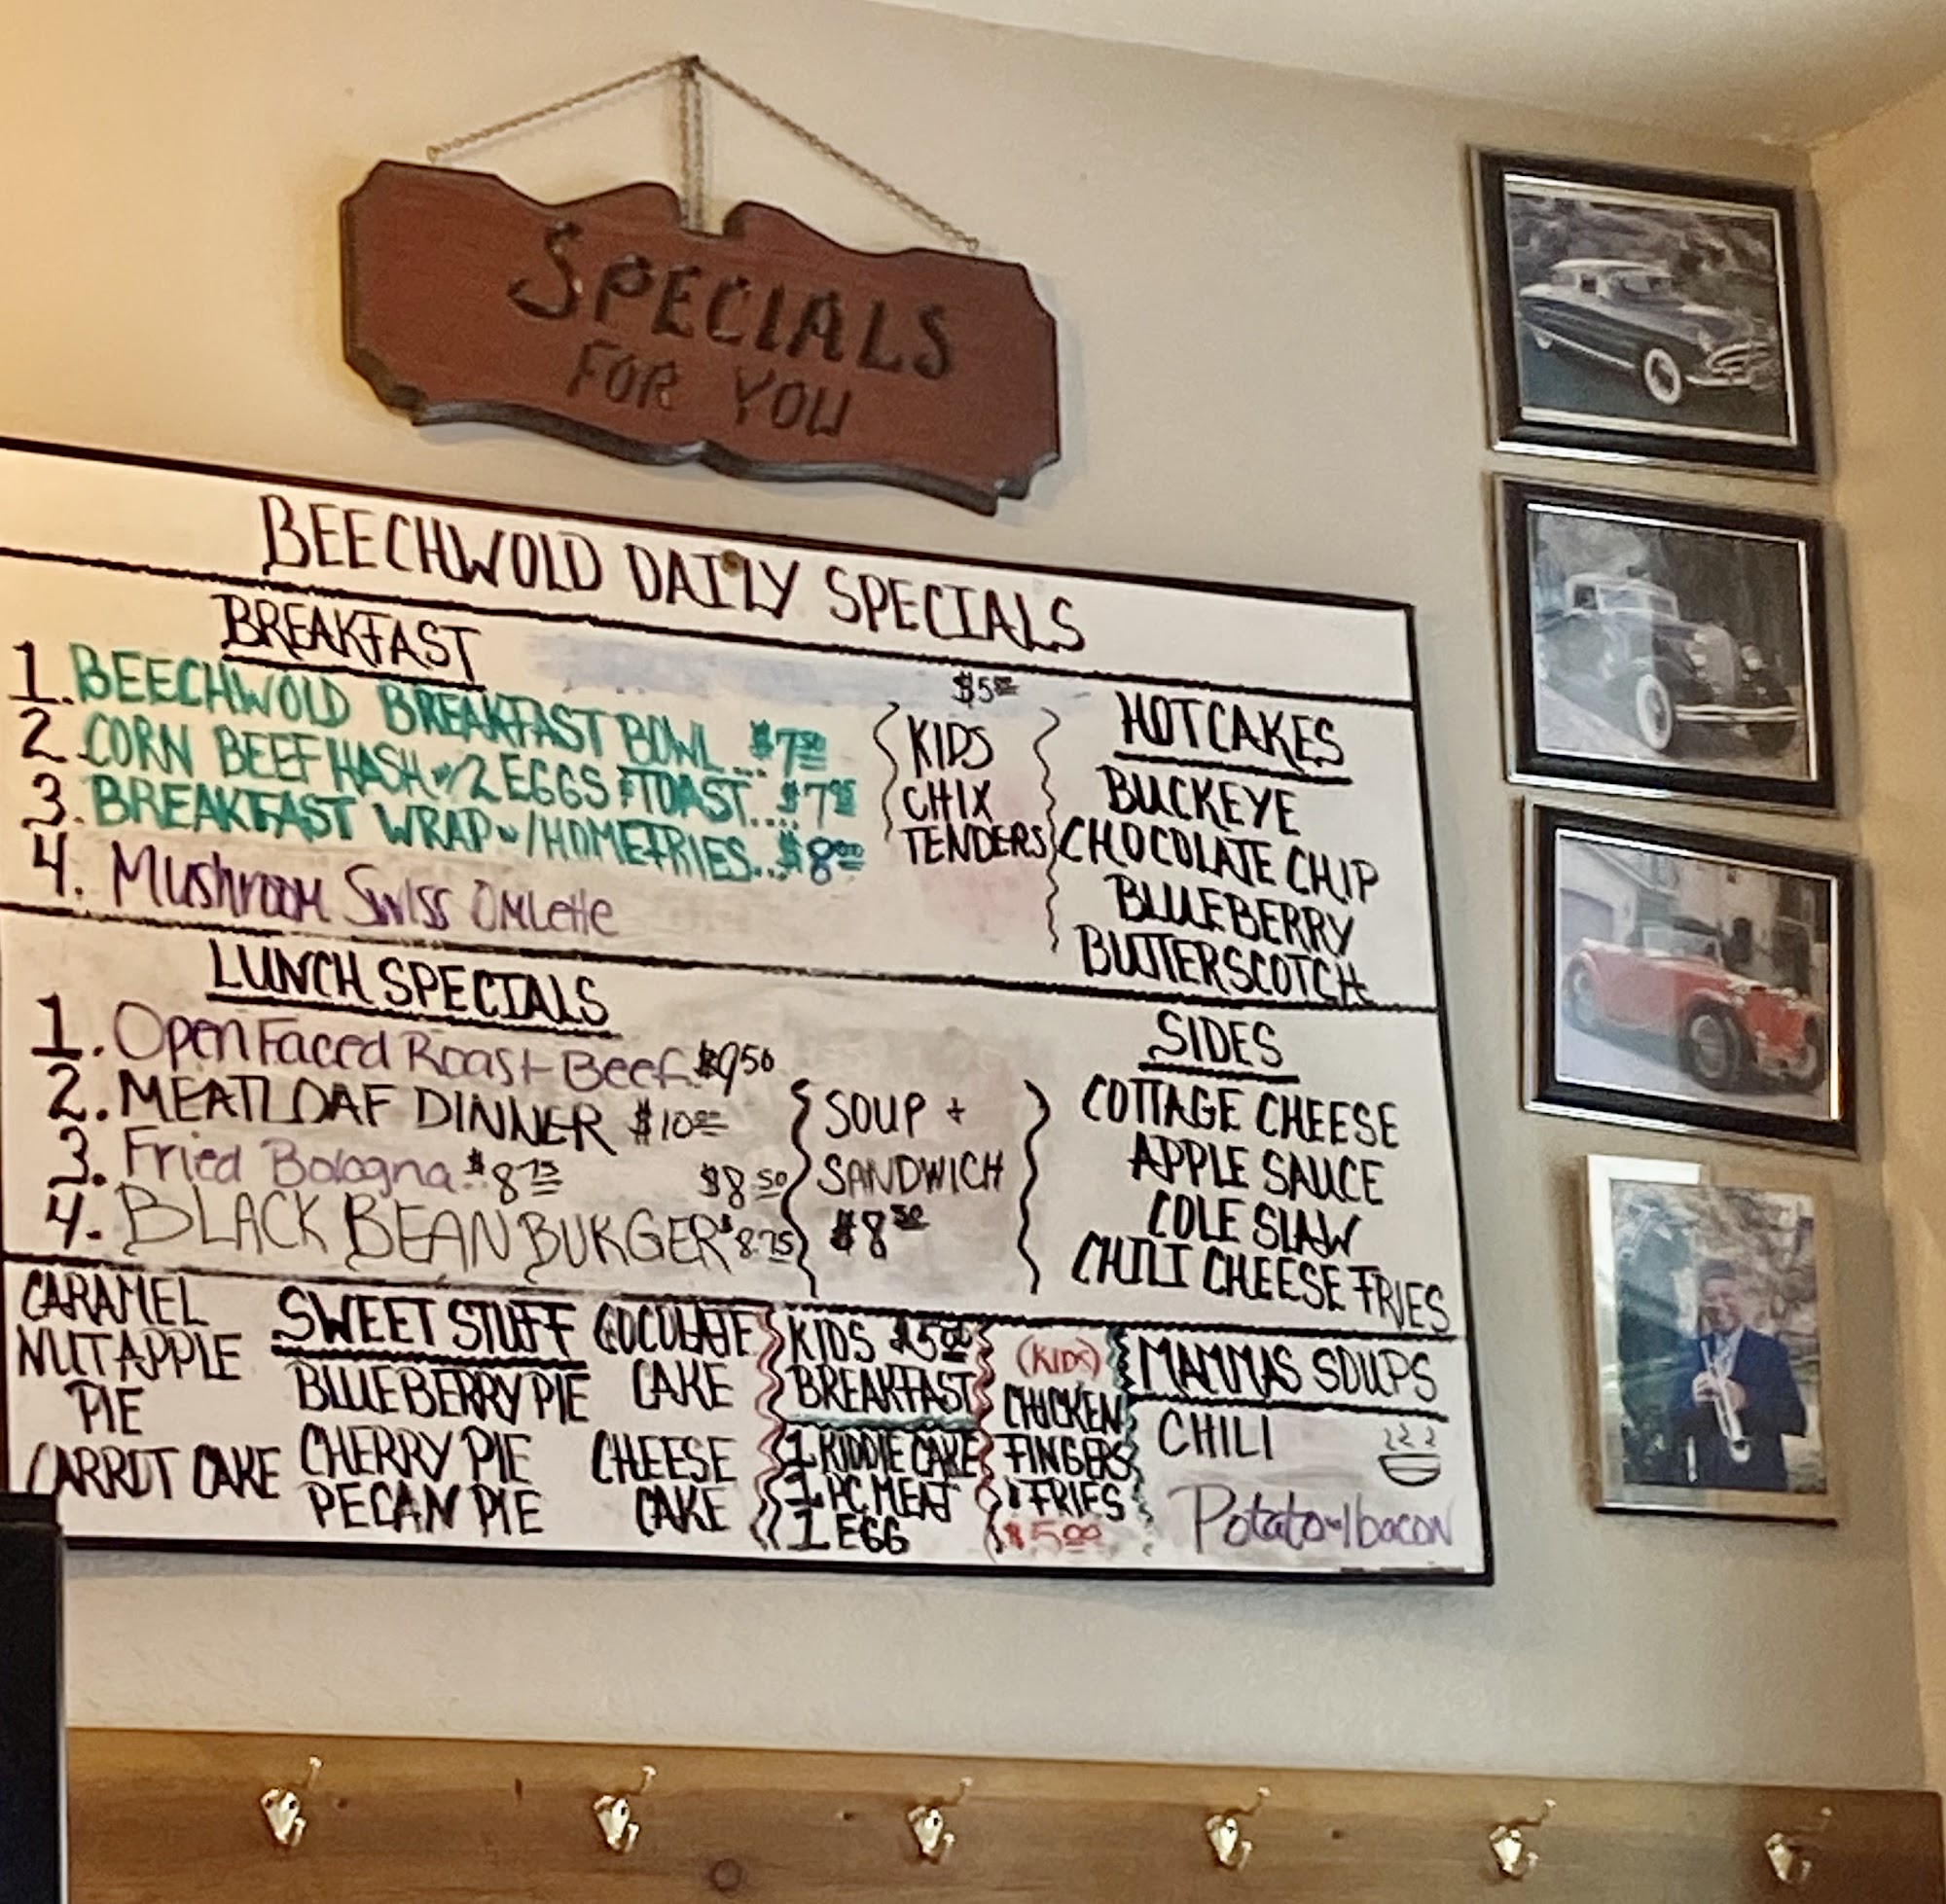 SPECIALS
FOR YOU
BEECHWOLD DAILY SPECIALS
BREAKFAST
1. BEECHWOLD BREAKFAST BOWL... $7.50
2. CORN BEEF HASH w/2 EGGS & TOAST... $7.95
3. BREAKFAST WRAP w/HOMEFRIES... $8.00
4. Mushroom Swiss Omlette
$5.00
KIDS
CHIX
TENDERS
HOTCAKES
BUCKEYE
CHOCOLATE CHIP
BLUEBERRY
BUTTERSCOTCH
LUNCH SPECIALS
1. Open Faced Roast Beef. $9.50
2. MEATLOAF DINNER $10.00
3. Fried Bologna. $8.75
$8.50
4. BLACK BEAN BURGER $8.75
SOUP +
SANDWICH
$8.50
SIDES
COTTAGE CHEESE
APPLE SAUCE
COLE SLAW
CHILI CHEESE FRIES
CARAMEL
NUT APPLE
PIE
CARROT CAKE
SWEET STUFF
BLUEBERRY PIE
CHERRY PIE
PECAN PIE
COCOLATE
CAKE
CHEESE
CAKE
KIDS $5.00
BREAKFAST
1 KIDDIE CAKE
1 PC MEAT
1 EGG
(KIDS)
CHICKEN
FINGERS
& FRIES
$5.00
MAMMAS SOUPS
CHILI
Potato w/bacon